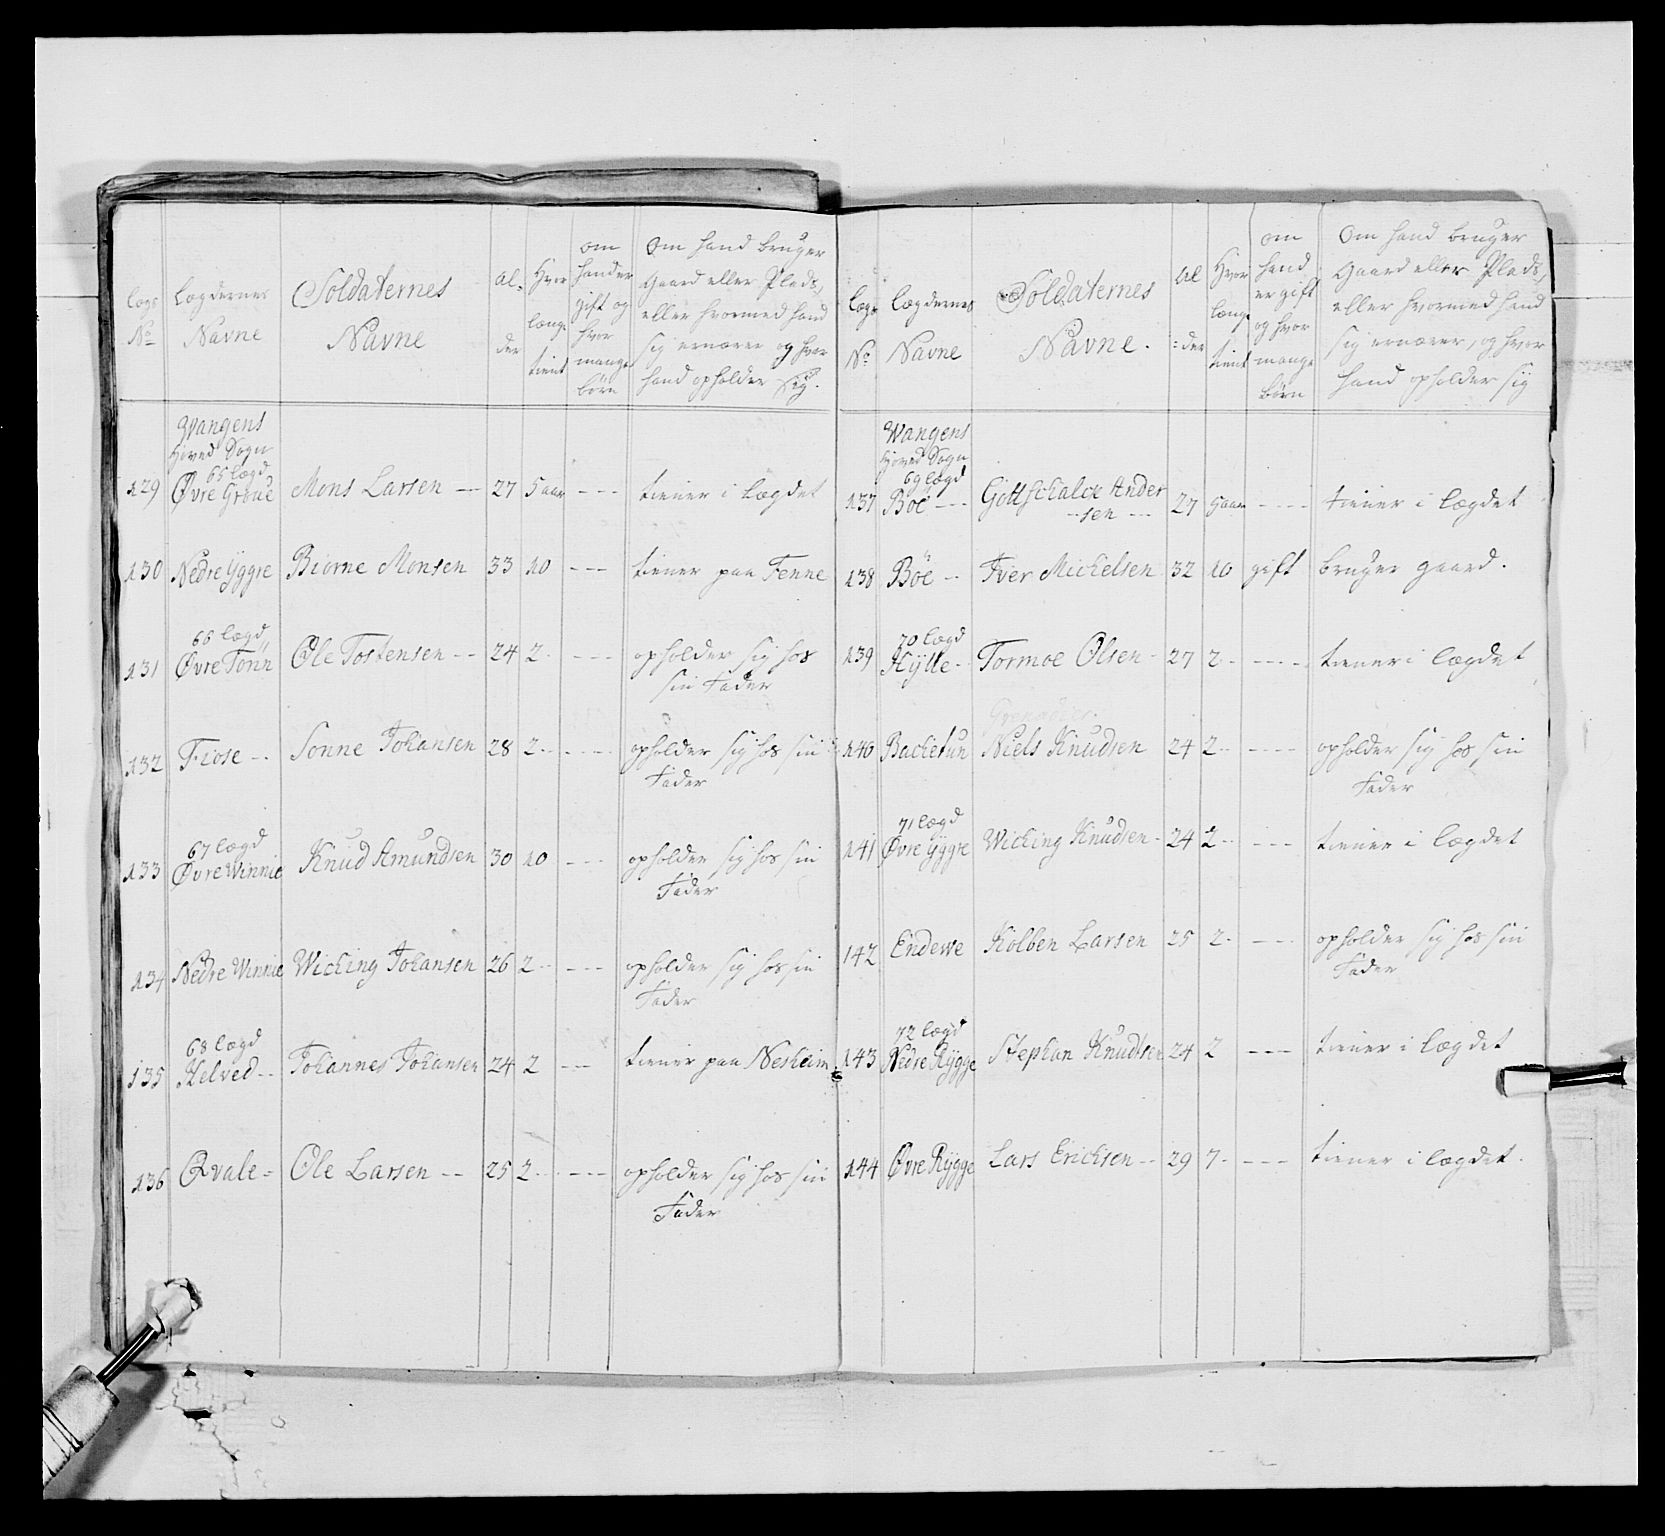 Lægs No | Lægdernes Navne | Soldaternes Navne | Al-der | Hvor længe tient | om hand er gift og hvor mange börn | Om hand bruger Gaard eller Plads, eller hvormed hand sig ernærer og hvor hand opholder sig.
Wangens
Hoved Sogn
65 lægd
129 Øvre Grøue Mons Larsen — 27 5 aar - - - tiener i lægdet
130 Nedre Yggre Biørne Monsen 33 10 - - - tiener paa Fenne
66 lægd
131 Øvre Tønn Ole Tostensen -- 24 2 - - - - opholder sig hos
sin Fader
132 Fiose -- Sonne Johansen 28 2 - - - - - opholder sig hos sin
Fader
67 lægd
133 Øvre Winnie Knud Amundsen 30 10 - - - opholder sig hos sin
Fader
134 Nedre Winnie Wiching Johansen 26 2 - - - - - opholder sig hos sin
Fader
68 lægd
135 Helved -- Johannes Johansen 24 2 - - - tiener paa Nesheim
136 Qvale = Ole Larsen -- 25 2 - - - - - opholder sig hos sin
Fader
Lægs No | Lægdernes Navne | Soldaternes Navne. | Al=der | Hvor længe tient | om hand er gift og hvor mange börn | Om hand bruger Gaard eller Plads, eller hvormed hand sig ernærer, og hvor hand opholder sig
Wangens
Hoved Sogn
69 lægd
137 Böe --- Gottschalck Ander
-sen --- 27 5 aar - - - - tiener i lægdet
138 Böe -- Iver Michelsen 32 10 gift bruger gaard.
70 lægd
139 Hÿlle -- Tormoe Olsen - 27 2 - - - - - tiener i lægdet
Grenadier.
140 Backetun Niels Knudsen 24 2 - - - - - opholder sig hos sin
Fader
71 lægd
141 Øvre Yggre Wiching Knudsen - 24 2 - - - - - tiener i lægdet
142 Endewe Kolben Larsen 25 2 - - - - opholder sig hos sin
Fader
72 lægd
143 Nedre Rÿgge Stephan Knudsen 24 2 - - - tiener i lægdet
144 Øvre Rÿgge Lars Ericksen -- 29 7 - - - - tiener i lægdet.